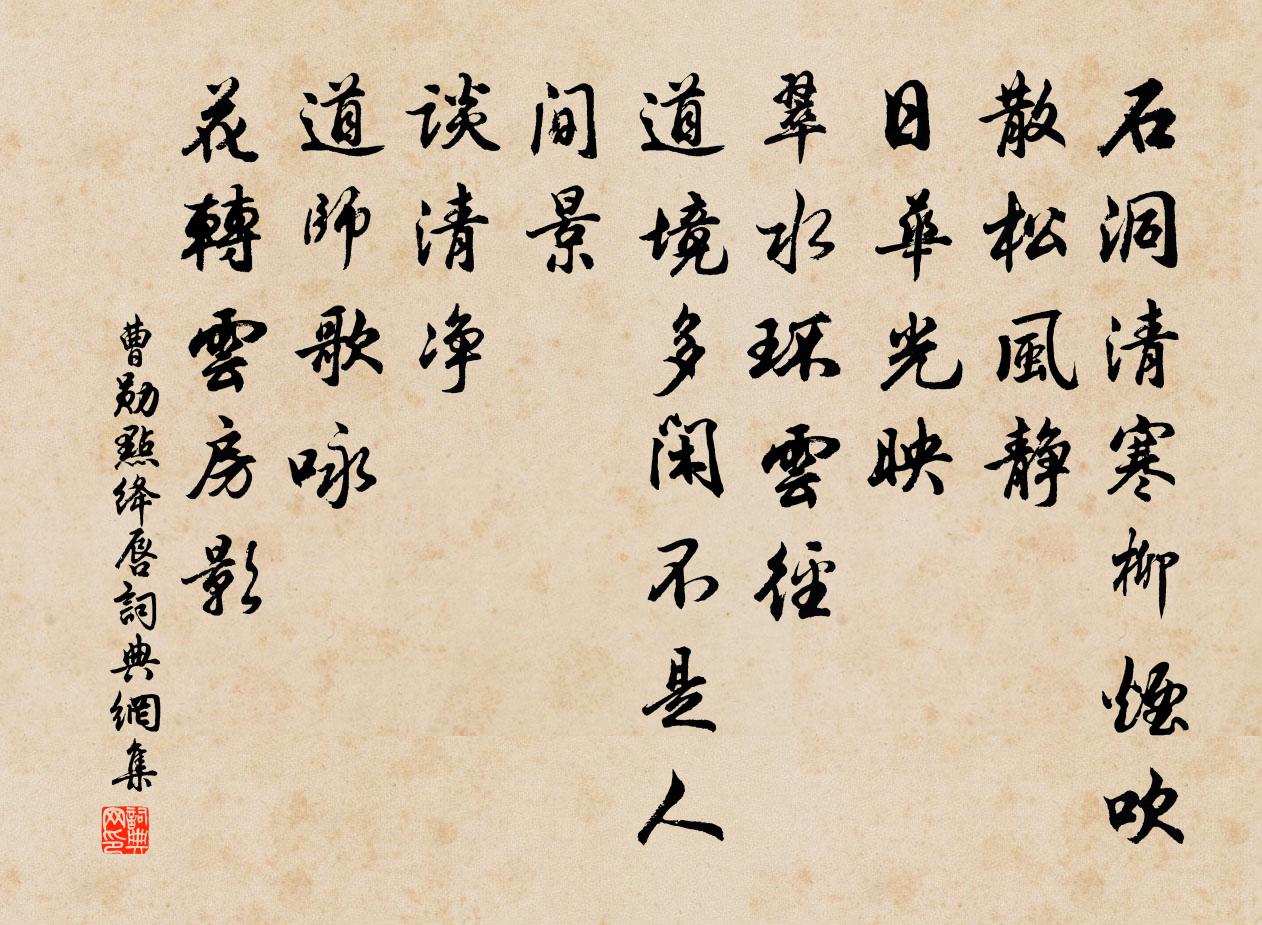 石洞清寒柳煙吹
散松風静
日華光映
翠水環雲徑
道境多閑不是人
間景
談清净
道師歌咏
花轉雲房影
曹勛點絳唇詞典網集
詞典网印